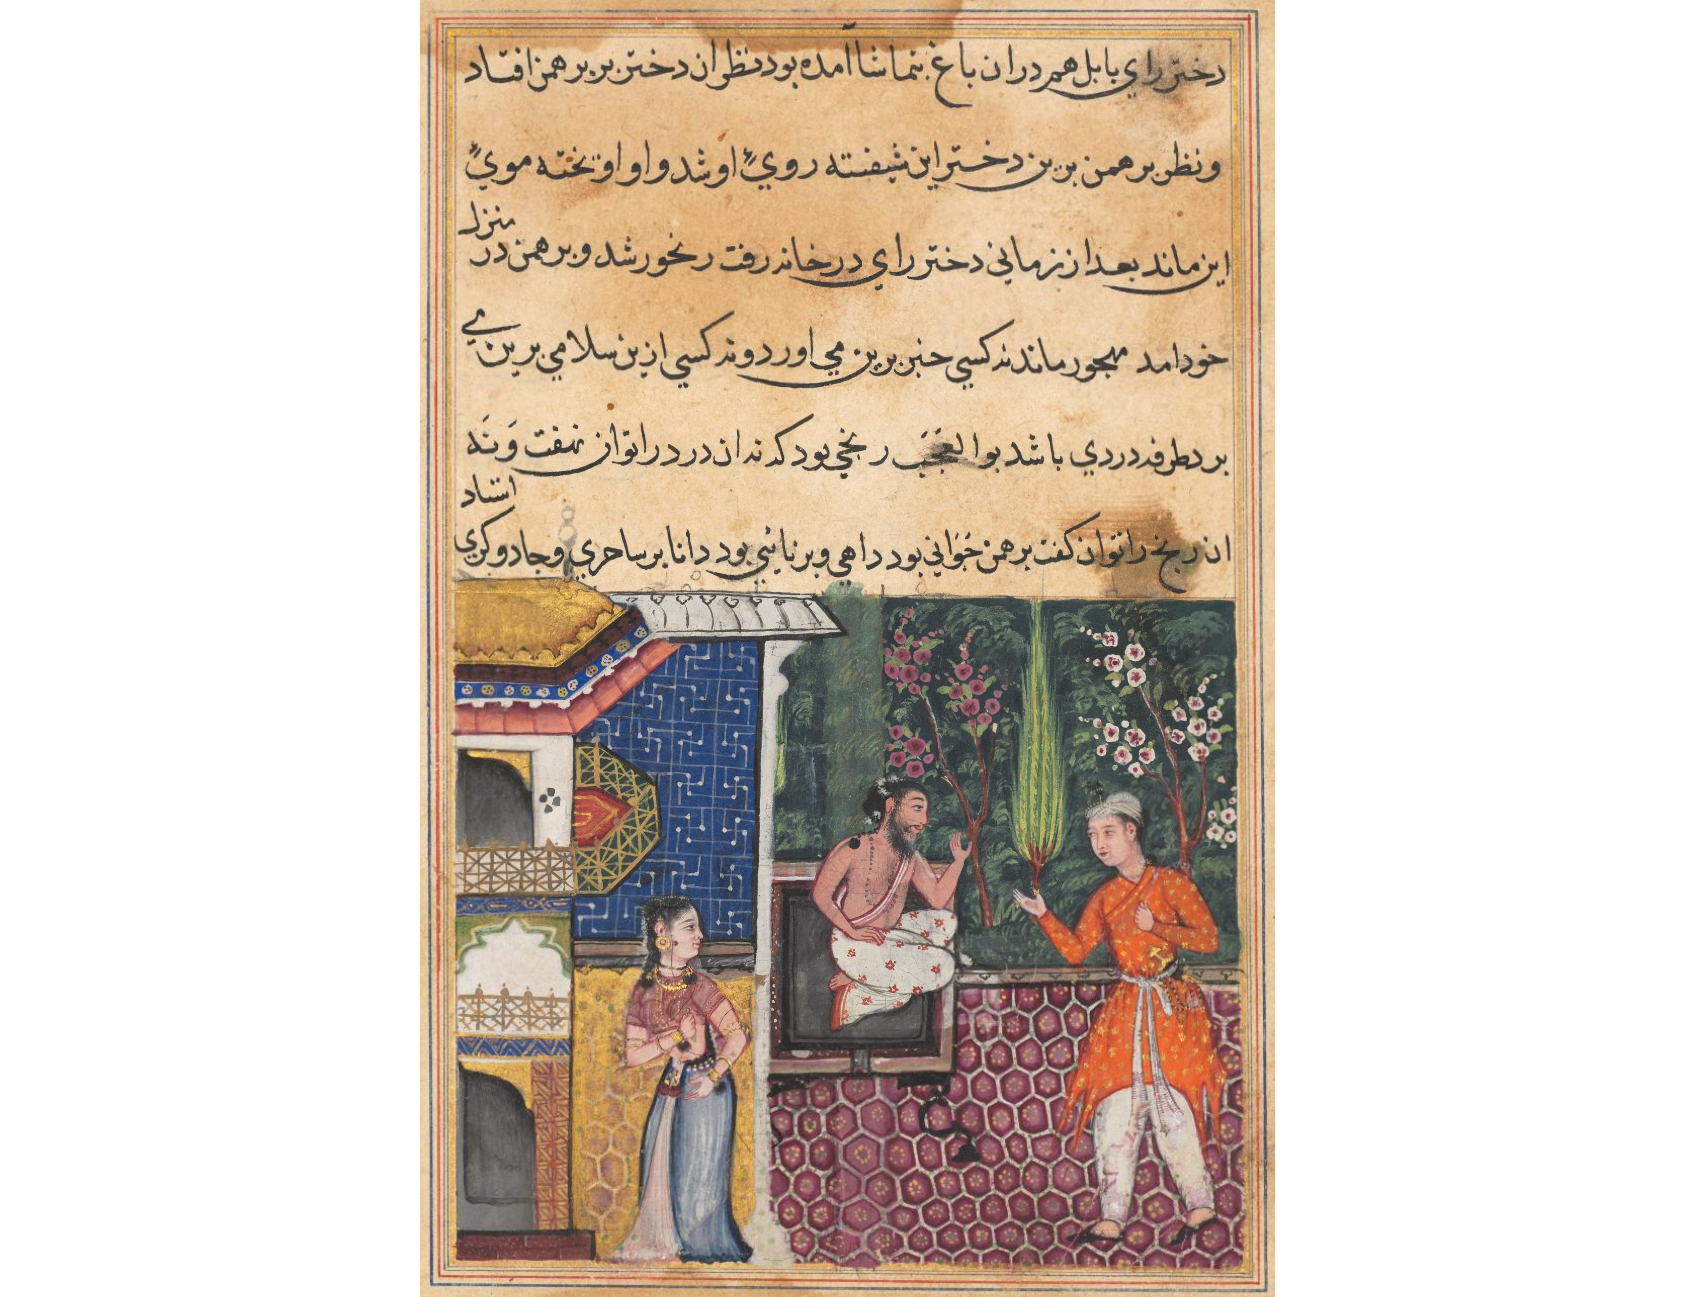 دختر راي بابل هم در ان باغ بتماشا آمده بود نظر ان دختر بر برهمن افتاد
و نظر برهمن برين دختر اين شيفته روي او شد و او اوفتخته موي
اين ماند بعد از زماني دختر راي در خانه رفت رنجور شد و برهمن در منزل
خود امد مهجور ماند نه كسي خبر برين مي اورد و نه كسي ازين سلامي برين مي
برد طرفه دردي باشد بوالعجب رنجي بود كه نه ان درد را توان نهفت وَنَه
ان رنج را توان كفت برهمن جُوَاني بود داهي و برنائي بود دانا بر ساحري و جادوكري استاد